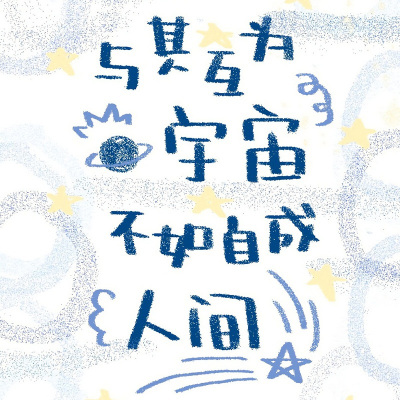 与其互为
宇宙
不如自成
人间